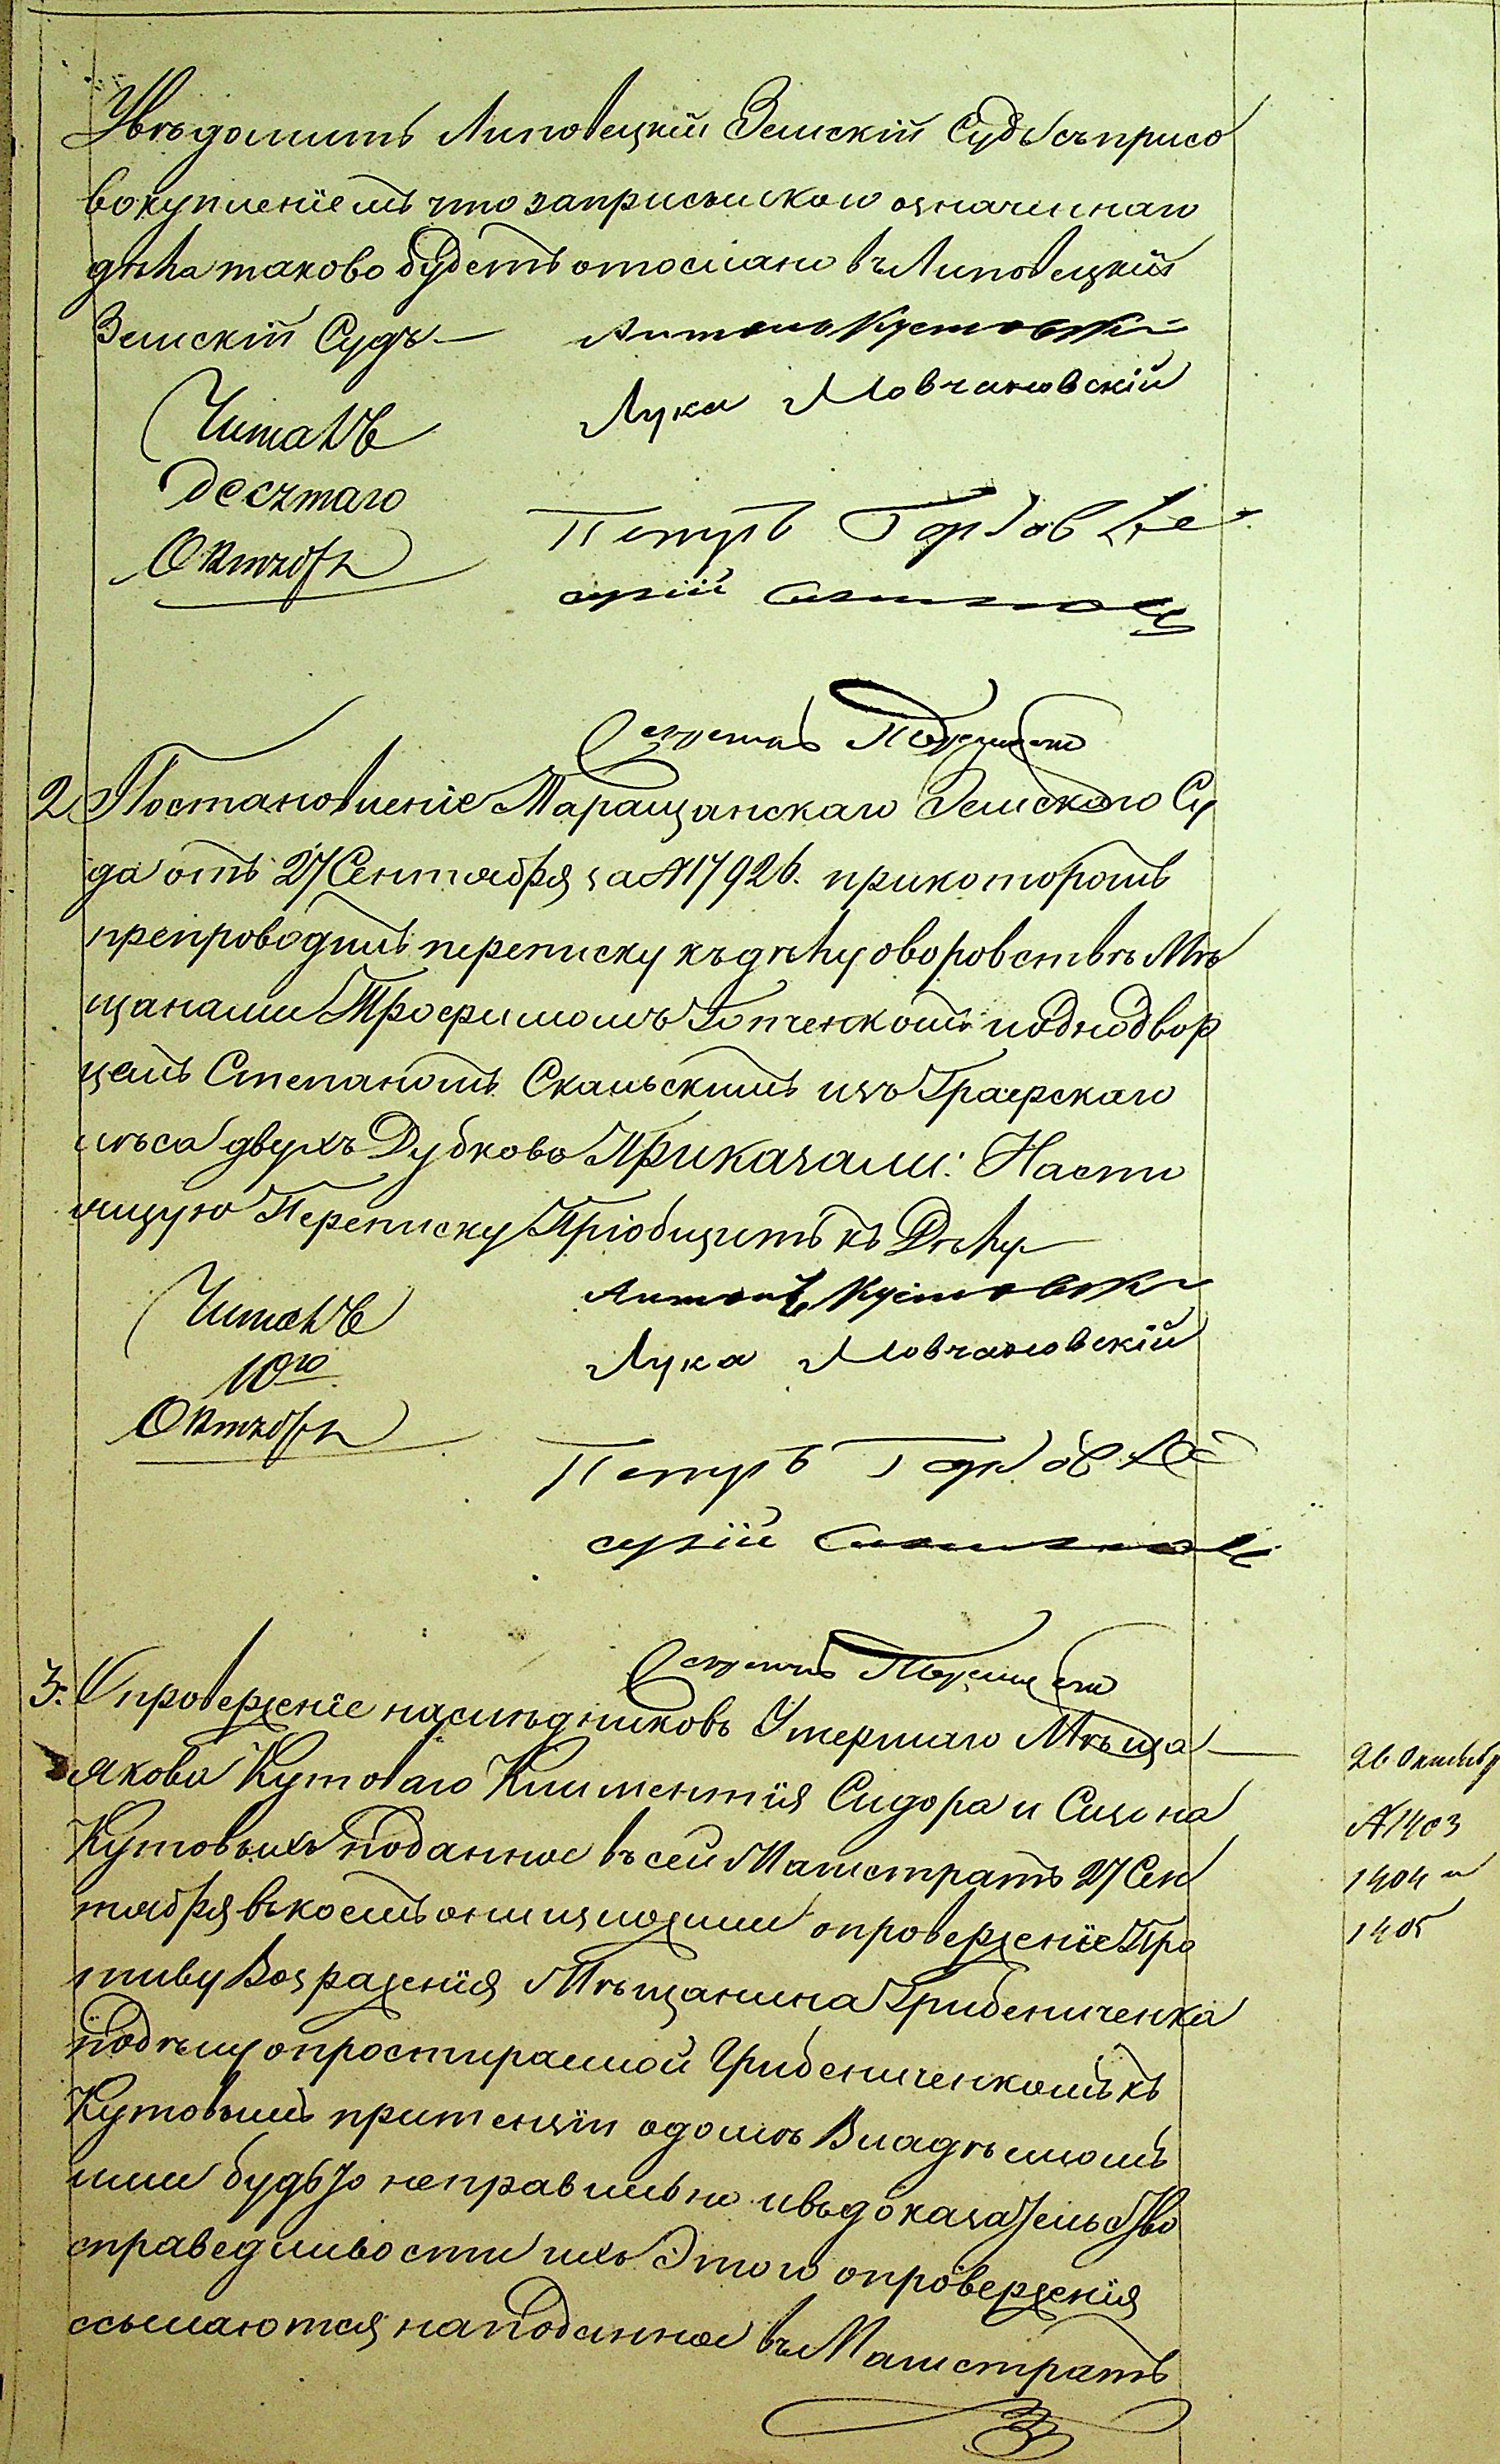 Увѣдомить Липовецкій Земскій Судъ съ присо
вокупленіемъ что за присылкою означеннаго
дѣла таково будетъ отослано въ Липовецкій
Земскій Судъ. Антонъ
Читалъ Лука Мовчановскій
Десятаго
Октября Петръ
Секретарь
2 Постановленіе Таращанскаго Земскаго Су
да отъ 27 Сентября за №17926. при которомъ
препроводитъ переписку къ дѣлу о воровствѣ Мѣ
щанами Трофимомъ Гопченкомъ и однодвор
цемъ Степаномъ Скальскимъ изъ Графскаго
лѣса двухъ Дубково Приказали: Насто
ящую Переписку Пріобщить къ Дѣлу
Читалъ Антонъ
10го Лука Мовчановскій
Октября
Петръ
Секретарь
3. Опроверженіе наслѣдниковъ Умершаго Мѣща
Якова Кутоваго Климентія Сидора и Сизона
Кутовыхъ поданное въ сей Магистратъ 27 Сен
тября въ коемъ они изложили опроверженіе Про
тиву Возраженія Мѣщанина Грибениченка
по дѣлу о простираемой Грибениченкомъ къ
Кутовымъ притензіи о домѣ Владѣемомъ
ими будьто неправильно и въ доказательство
справедливости ихъ Этого опроверженія
ссылаются на поданное въ Магистратъ
26 Октября
№1403
1404 и
1405